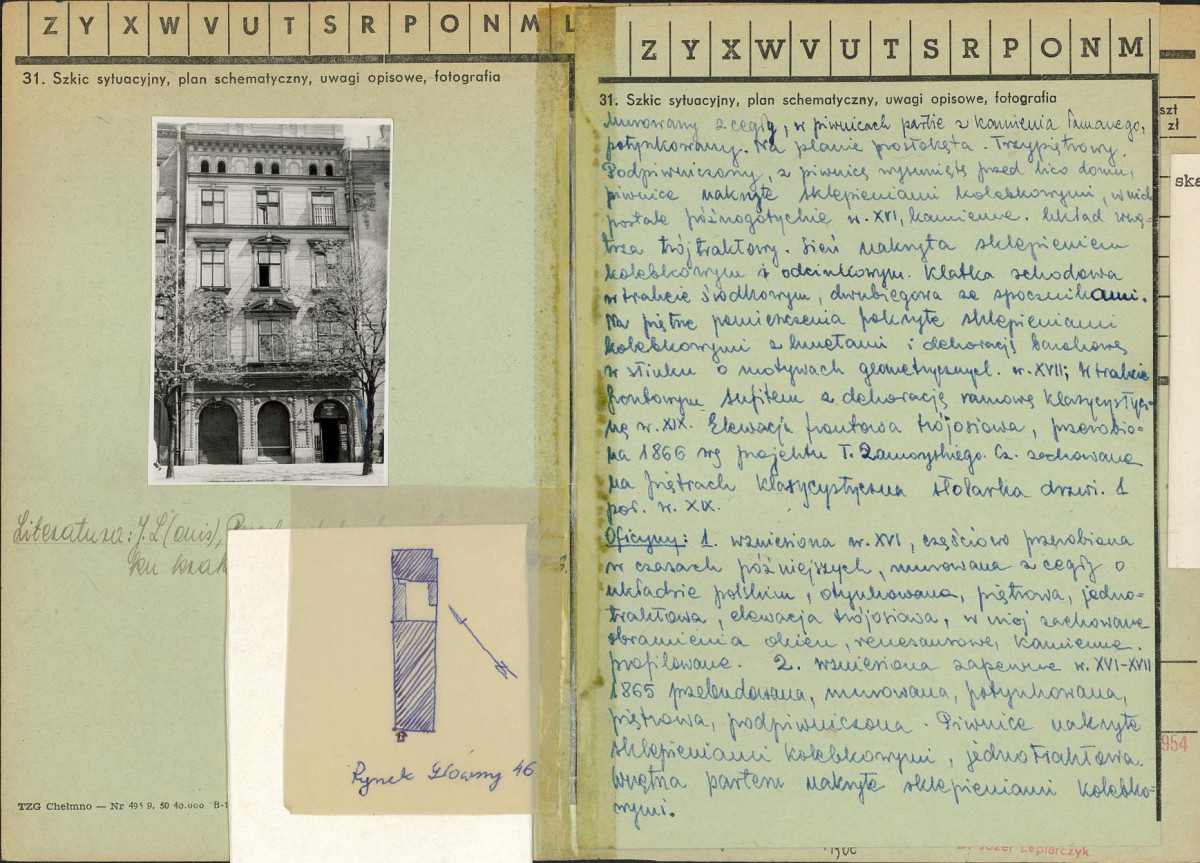 Z Y X W V U T S R P O N M L
31. Szkic sytuacyjny, plan schematyczny, uwagi opisowe, fotografia
Literatura: J. L(ouis),
ku krak
Rynek Główny 46
TZG Chełmno — Nr 495 9. 50 40.000 B-1
Z Y X W V U T S R P O N M
31. Szkic sytuacyjny, plan schematyczny, uwagi opisowe, fotografia
Murowany z cegły, w piwnicach partie z kamienia łamanego,
potynkowany. Na planie prostokąta. Trzypiętrowy.
Podpiwniczony, z piwnicą wysuniętą przed lico domu,
piwnice nakryte sklepieniami kolebkowymi, w nich
portale późnogotyckie w. XVI, kamienne. Układ wnę-
trza trójtraktowy. Sień nakryta sklepieniem
kolebkowym i odcinkowym. Klatka schodowa
w trakcie środkowym, dwubiegowa ze spocznikami.
Na piętrze pomieszczenia pokryte sklepieniami
kolebkowymi z lunetami i dekoracją barokową
w stiuku o motywach geometrycznych. w. XVII; w trakcie
frontowym sufitem z dekoracją ramową klasycystycz-
ną w. XIX. Elewacja frontowa trójosiowa, przerobio-
na 1866 wg projektu T. Zamoyskiego. Cz. zachowana
na piętrach klasycystyczna stolarka drzwi. 1
poł. w. XIX.
Oficyny: 1. wzniesiona w. XVI, częściowo przerobiona
w czasach późniejszych, murowana z cegły o
układzie polskim, otynkowana, piętrowa, jedno-
traktowa, elewacja trójosiowa, w niej zachowane
obramienia okien, renesansowe, kamienne.
profilowane. 2. wzniesiona zapewne w. XVI-XVII
1865 przebudowana, murowana, potynkowana,
piętrowa, podpiwniczona. Piwnice nakryte
sklepieniami kolebkowymi, jednotraktowa.
Wnętrza parteru nakryte sklepieniami kolebko-
wymi.
szt
zł
ska
954
Dr Józef Lepiarczyk